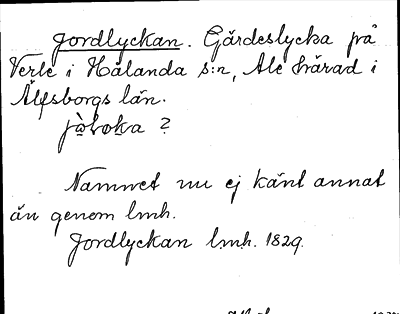 Jordlyckan. Gärdeslycka på
Verle i Hålanda s:n, Ale härad i
Älfsborgs län.
?
Namnet nu ej känt annat
än genom lmh.
Jordlyckan lmh. 1829.